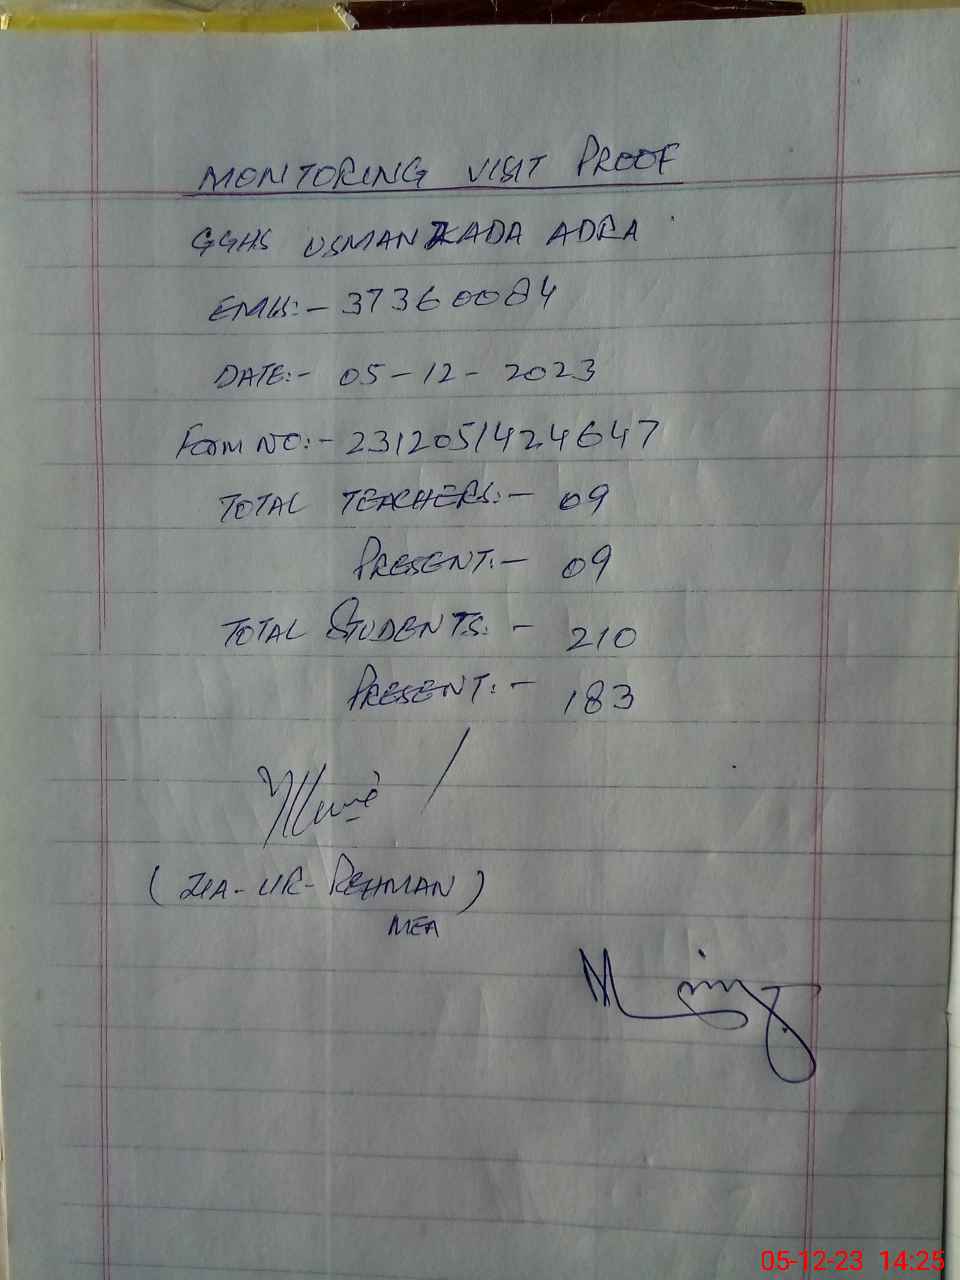 MONITORING VISIT PROOF
GGHS USMANZADA ADRA
EMIS:- 37360084
DATE:- 05-12-2023
FORM NO:- 2312051424647
TOTAL TEACHERS:- 09
PRESENT:- 09
TOTAL STUDENTS:- 210
PRESENT:- 183
(ZIA-UR-REHMAN)
MEA
05-12-23 14:25